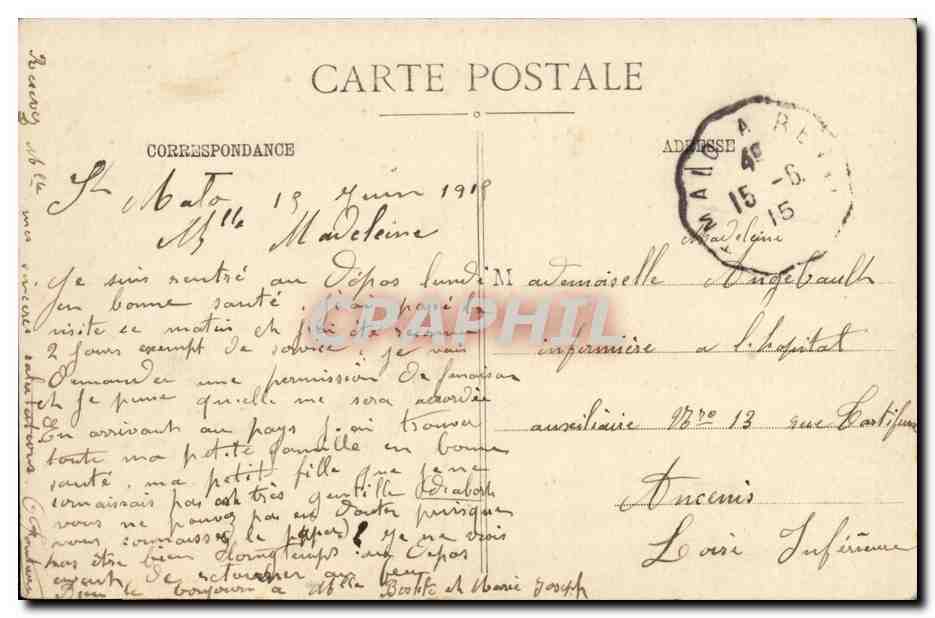 CARTE POSTALE
CORRESPONDANCE
ADRESSE
St Malo 15 Juin 1915
Mlle Madeleine
Je suis rentré au Dépos lundi
en bonne santé. j'ai passé la
visite ce matin et j'ai été reconnu
2 jours exempt de service; je vais
demander une permission de fenaison
et je pense qu'elle me sera accordée
En arrivant au pays j'ai trouver
toute ma petite famille en bonne
santé, ma petit fille que je ne
connaissais pas est très gentille d'abord
vous ne pouvez pas en douter puisque
vous connaisser le papa! Je ne crois
pas être bien longtemps au Dépos
avant de retourner au feu
Bien le bonjour à Mlle et Marie Joseph
Recevez Mlle mes sincères salutations
Madeleine
Mademoiselle Angebault
infirmière a l'hopital
auxiliaire No 13 rue
Ancenis
Loire Inférieure
MALO A
15 -6
15
CPAPHIL